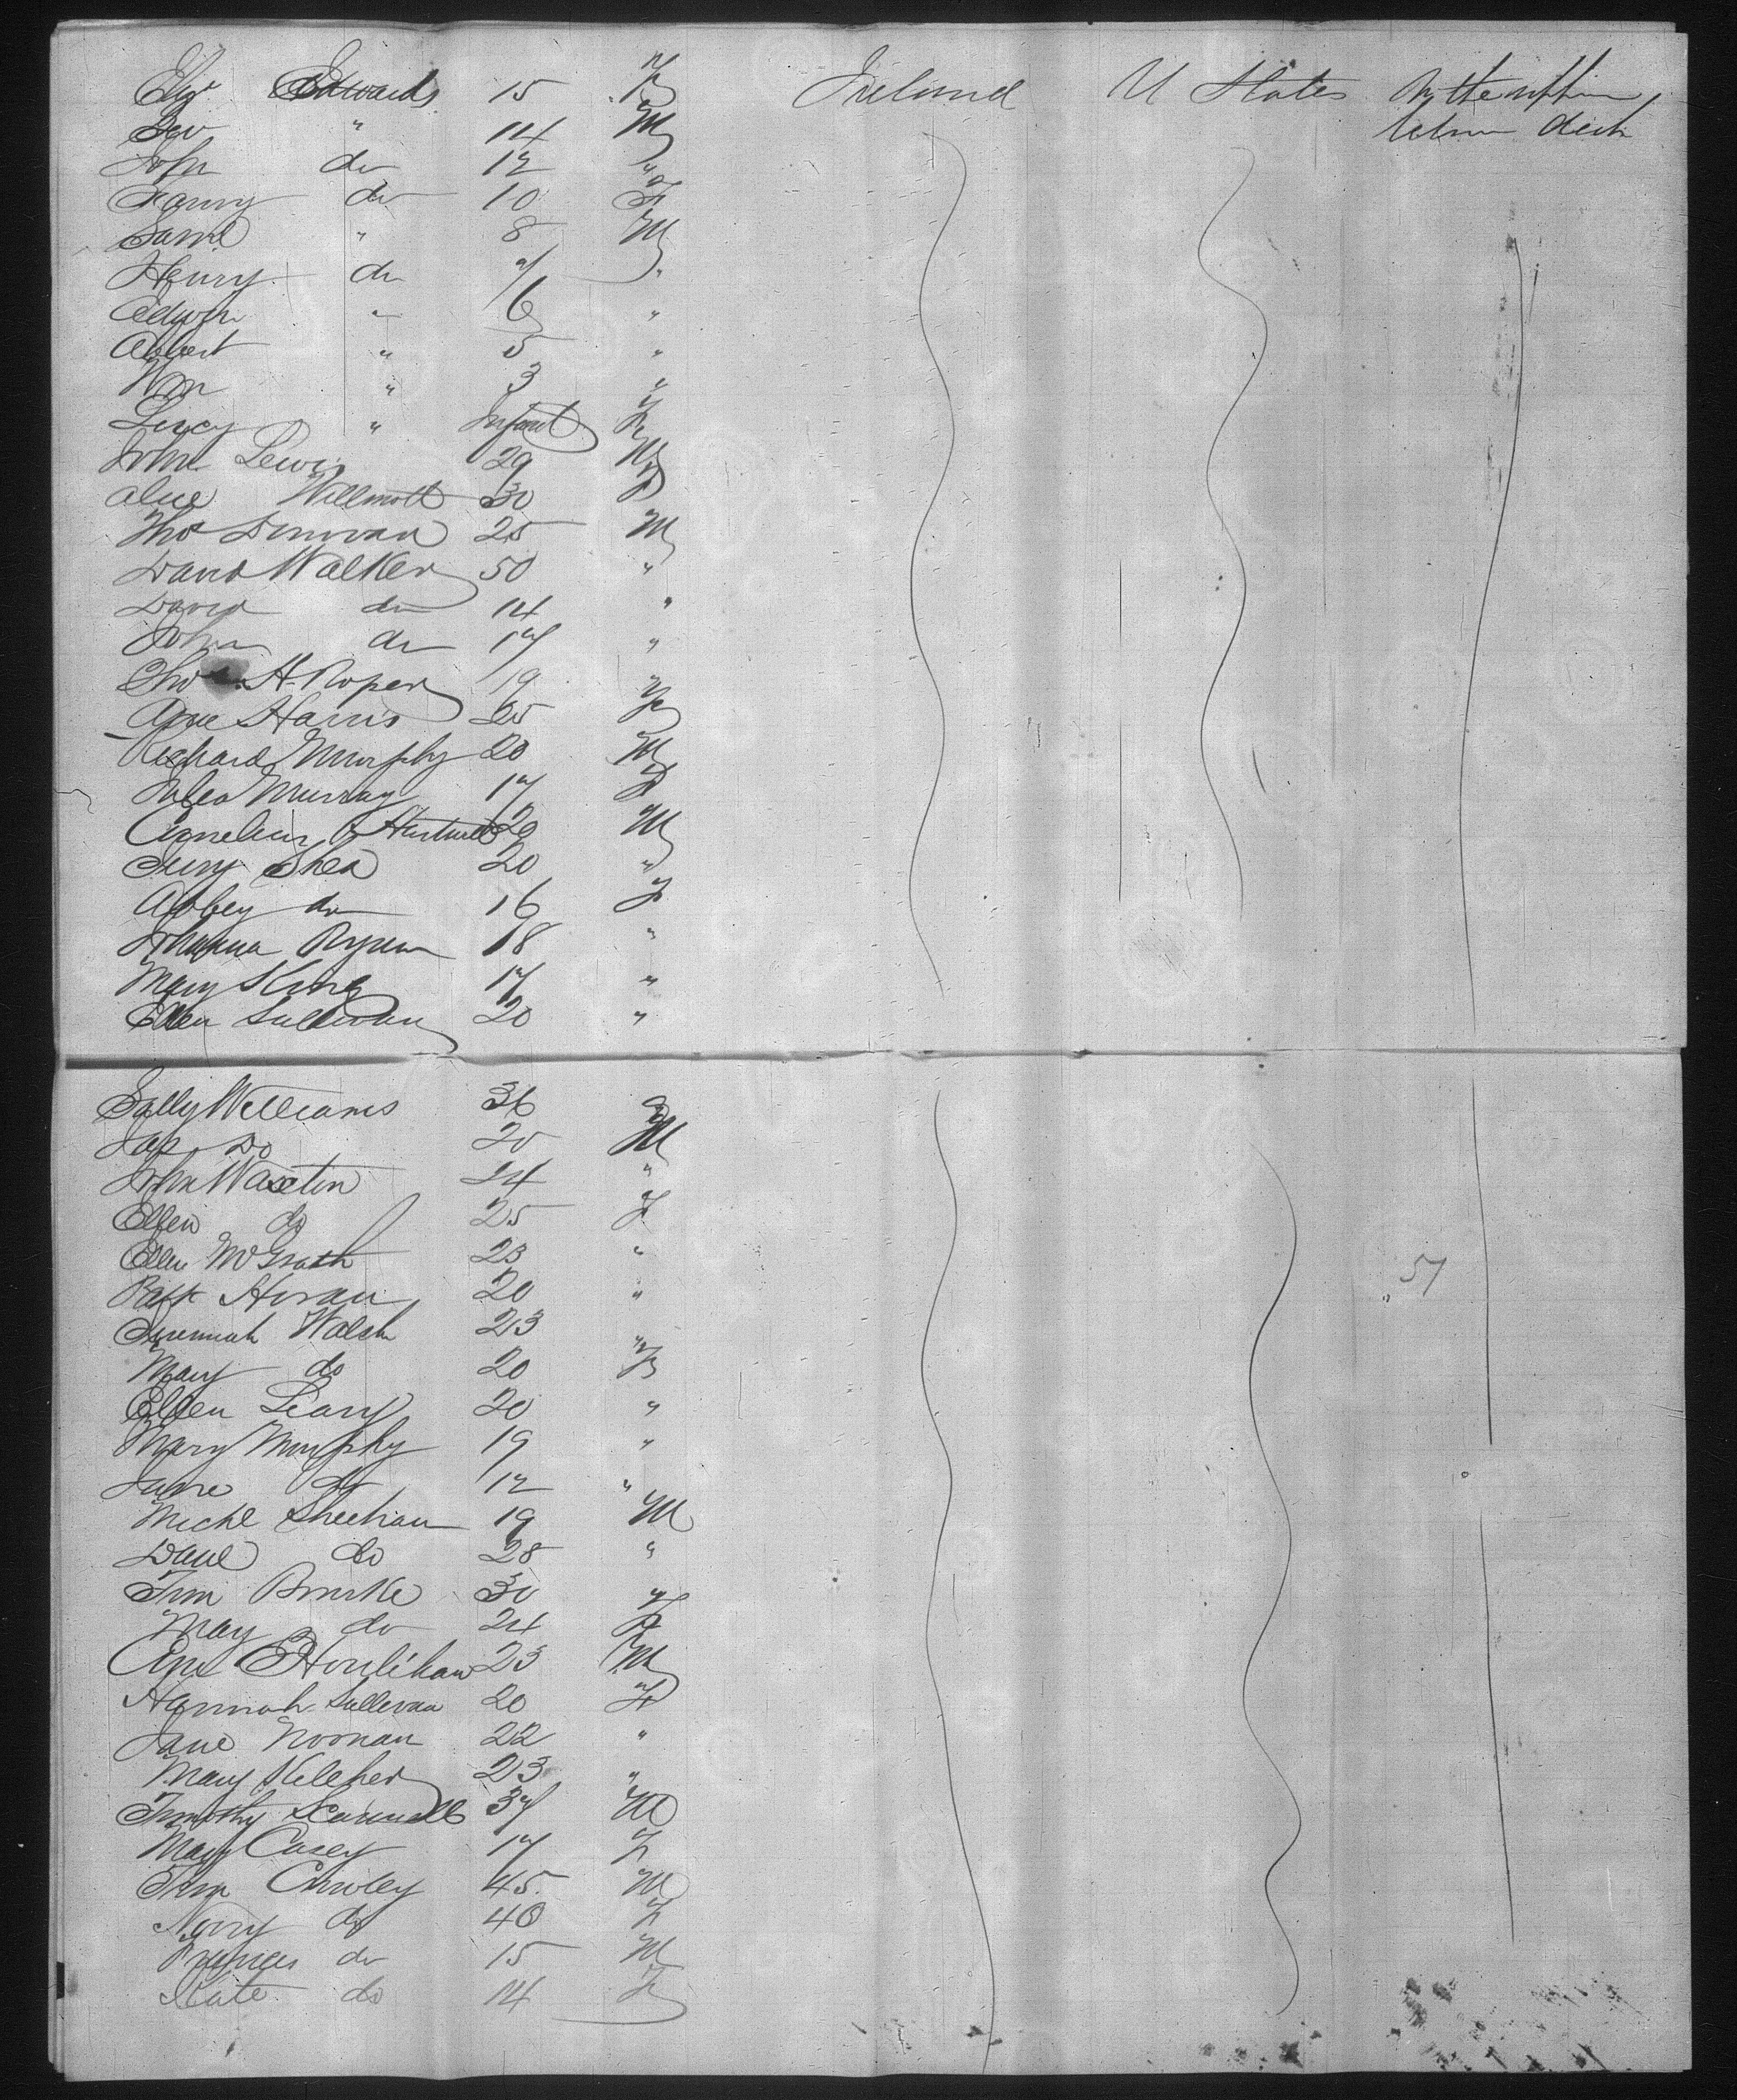 Eliz Edwards 15 F Ireland U States In the upper
Geo " 14 M between deck
John do 12 "
Fanny do 10 F
Saml " 8 M
Henry do 7 "
Edwin " 6 "
Albert " 5 "
Wm " 3 "
Lucy " Infant F
John Lewis 29 M
Alice Willmott 30 F
Thos Donovan 25 M
David Walker 50 "
David do 14 "
John do 17 "
Tho H. Roper 19 "
Ane Harris 25 F
Richard Murphy 20 M
Julia Murray 17 F
Cornelius 29 M
Jerry Shea 20 "
Abbey do 16 F
Johanna Ryan 18 "
Mary King 17 "
Ellen Sullivan 20 "
Sally Williams 36 F
Jas Do 20 M
John Waxton 24 "
Ellen do 25 F
Ellen McGrath 23 "
Patk Horan 20 "
57
Jeremiah Walsh 23
Mary do 20 F
Ellen Leary 20 "
Mary Murphy 19 "
Jane do 12 "
Michl Sheehan 19 M
Danl do 28 "
Tim Bourke 30 "
Mary do 24 F
Houlihan 23 M
Hannah Sullivan 20 F
Jane Noonan 22 "
Mary Kelleher 23 "
Timothy Scannell 37 M
Mary Casey 17 F
Tim Crowley 45 M
Norry do 40 F
Frances do 15 M
Kate do 14 F